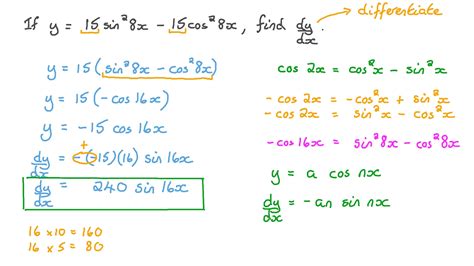 If y = 15 sin²8x − 15cos²8x, find dy/dx.
differentiate
y = 15 (sin²8x − cos²8x)
y = 15 (−cos 16x)
y = −15 cos 16x
+
dy/dx = −(−15)(16) sin 16x
dy/dx = 240 sin 16x
16 × 10 = 160
16 × 5 = 80
cos 2x = cos²x − sin²x
−cos 2x = −cos²x + sin²x
−cos 2x = sin²x − cos²x
−cos 16x = sin²8x − cos²8x
y = a cos nx
dy/dx = −an sin nx